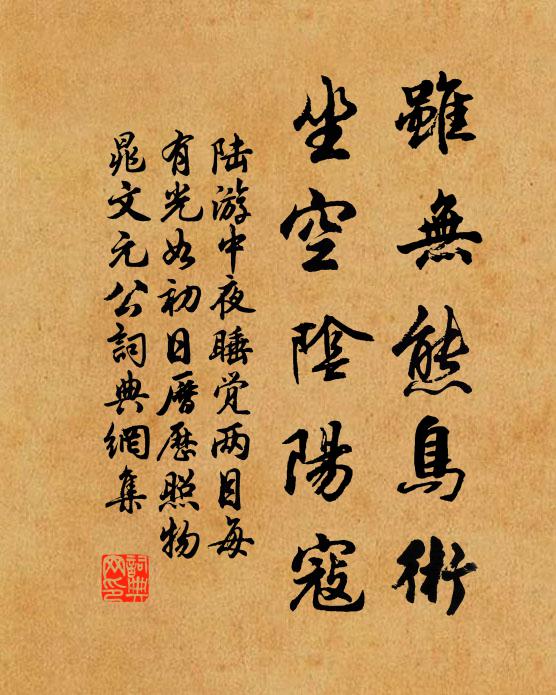 雖無熊鳥術
坐空陰陽寇
陆游中夜睡觉两目每
有光如初日曆歷照物
晁文元公詞典網集
詞典网印